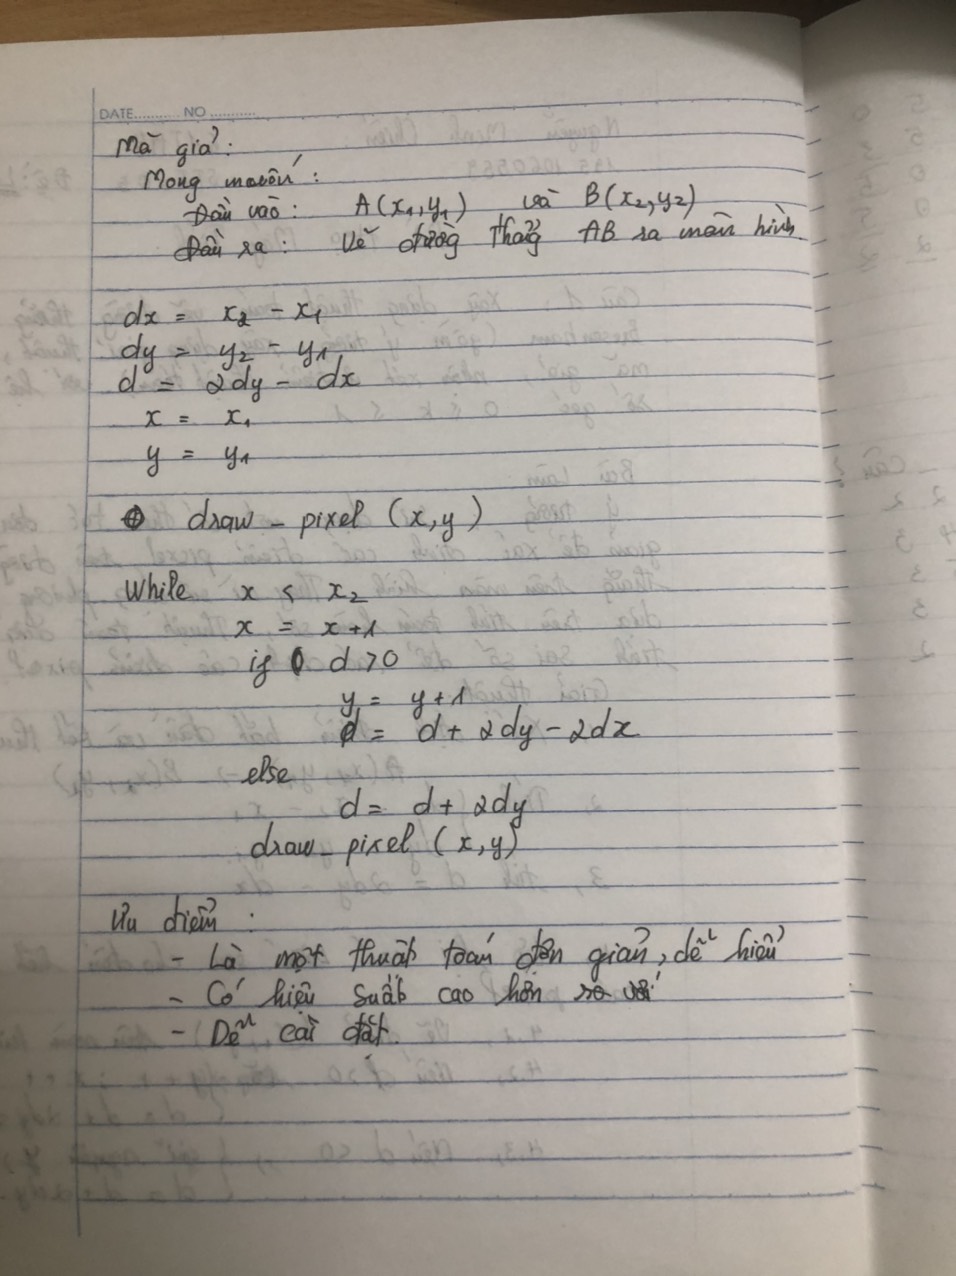 DATE........... NO ...........
Mã giả:
Mong muốn:
Đầu vào: A(x₁,y₁) và B(x₂,y₂)
Đầu ra: Vẽ đường thẳng AB ra màn hình
dx = x₂ - x₁
dy = y₂ - y₁
d = 2dy - dx
x = x₁
y = y₁
draw_pixel (x,y)
While x < x₂
x = x+1
if d>0
y = y+1
d = d + 2dy - 2dx
else
d = d + 2dy
draw_pixel (x,y)
Ưu điểm:
- Là một thuật toán đơn giản, dễ hiểu
- Có hiệu suất cao hơn so với
- Dễ cài đặt.